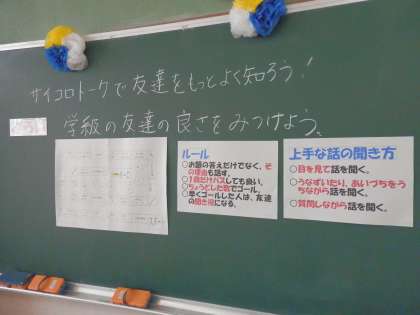 サイコロトークで友達をもっとよく知ろう!
学級の友達の良さをみつけよう。
ルール
○お題の答えだけでなく、そ
の理由も話す。
○1回だけパスしても良い。
○ちょうどした数でゴール。
○早くゴールした人は、友達
の聞き役になる。
上手な話の聞き方
○目を見て話を聞く。
○うなずいたり、あいづちをう
ちながら話を聞く。
○質問しながら話を聞く。